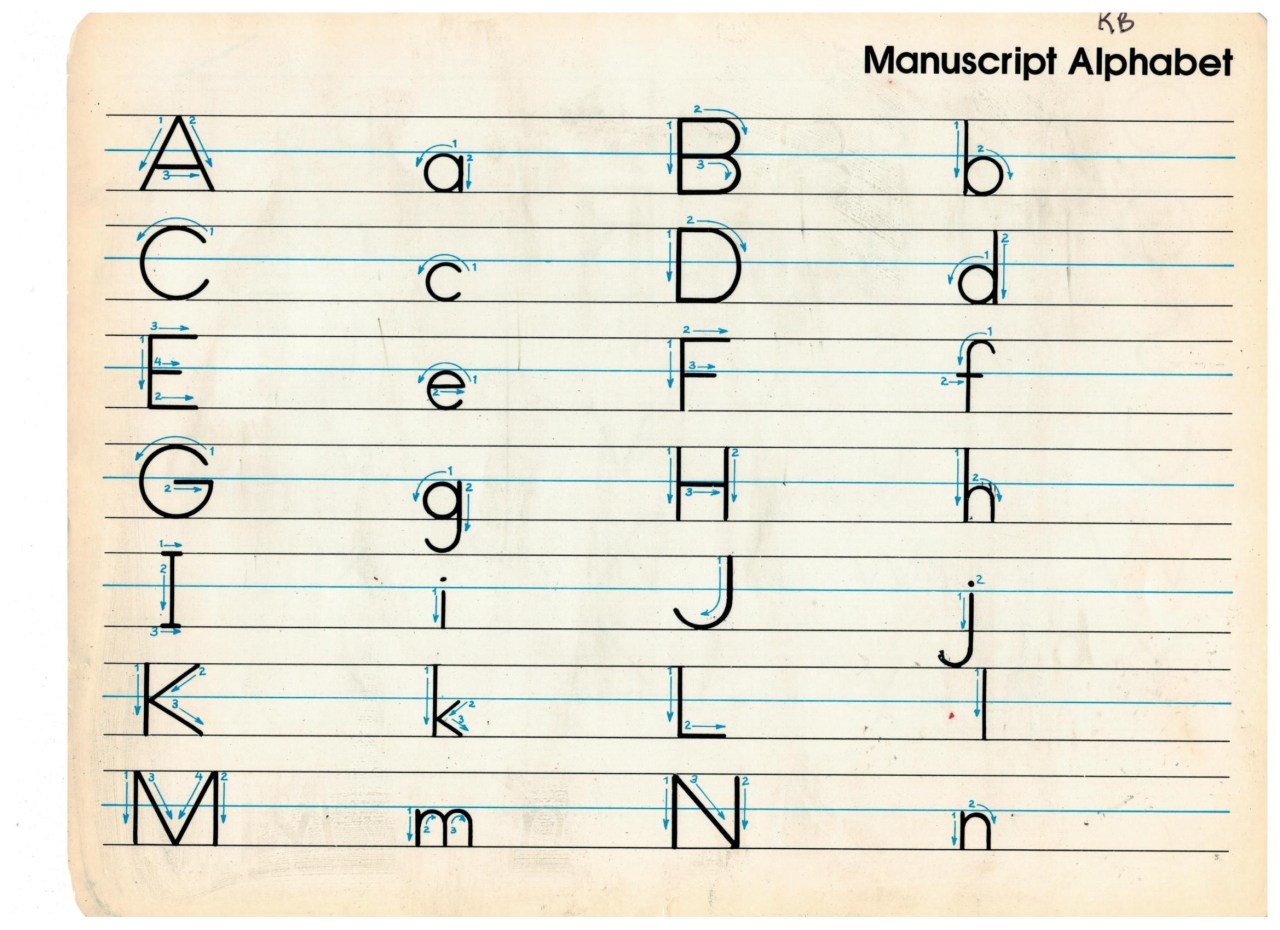 KB
Manuscript Alphabet
A a B b
C c D d
E e F f
G g H h
I i J j
K k L l
M m N n